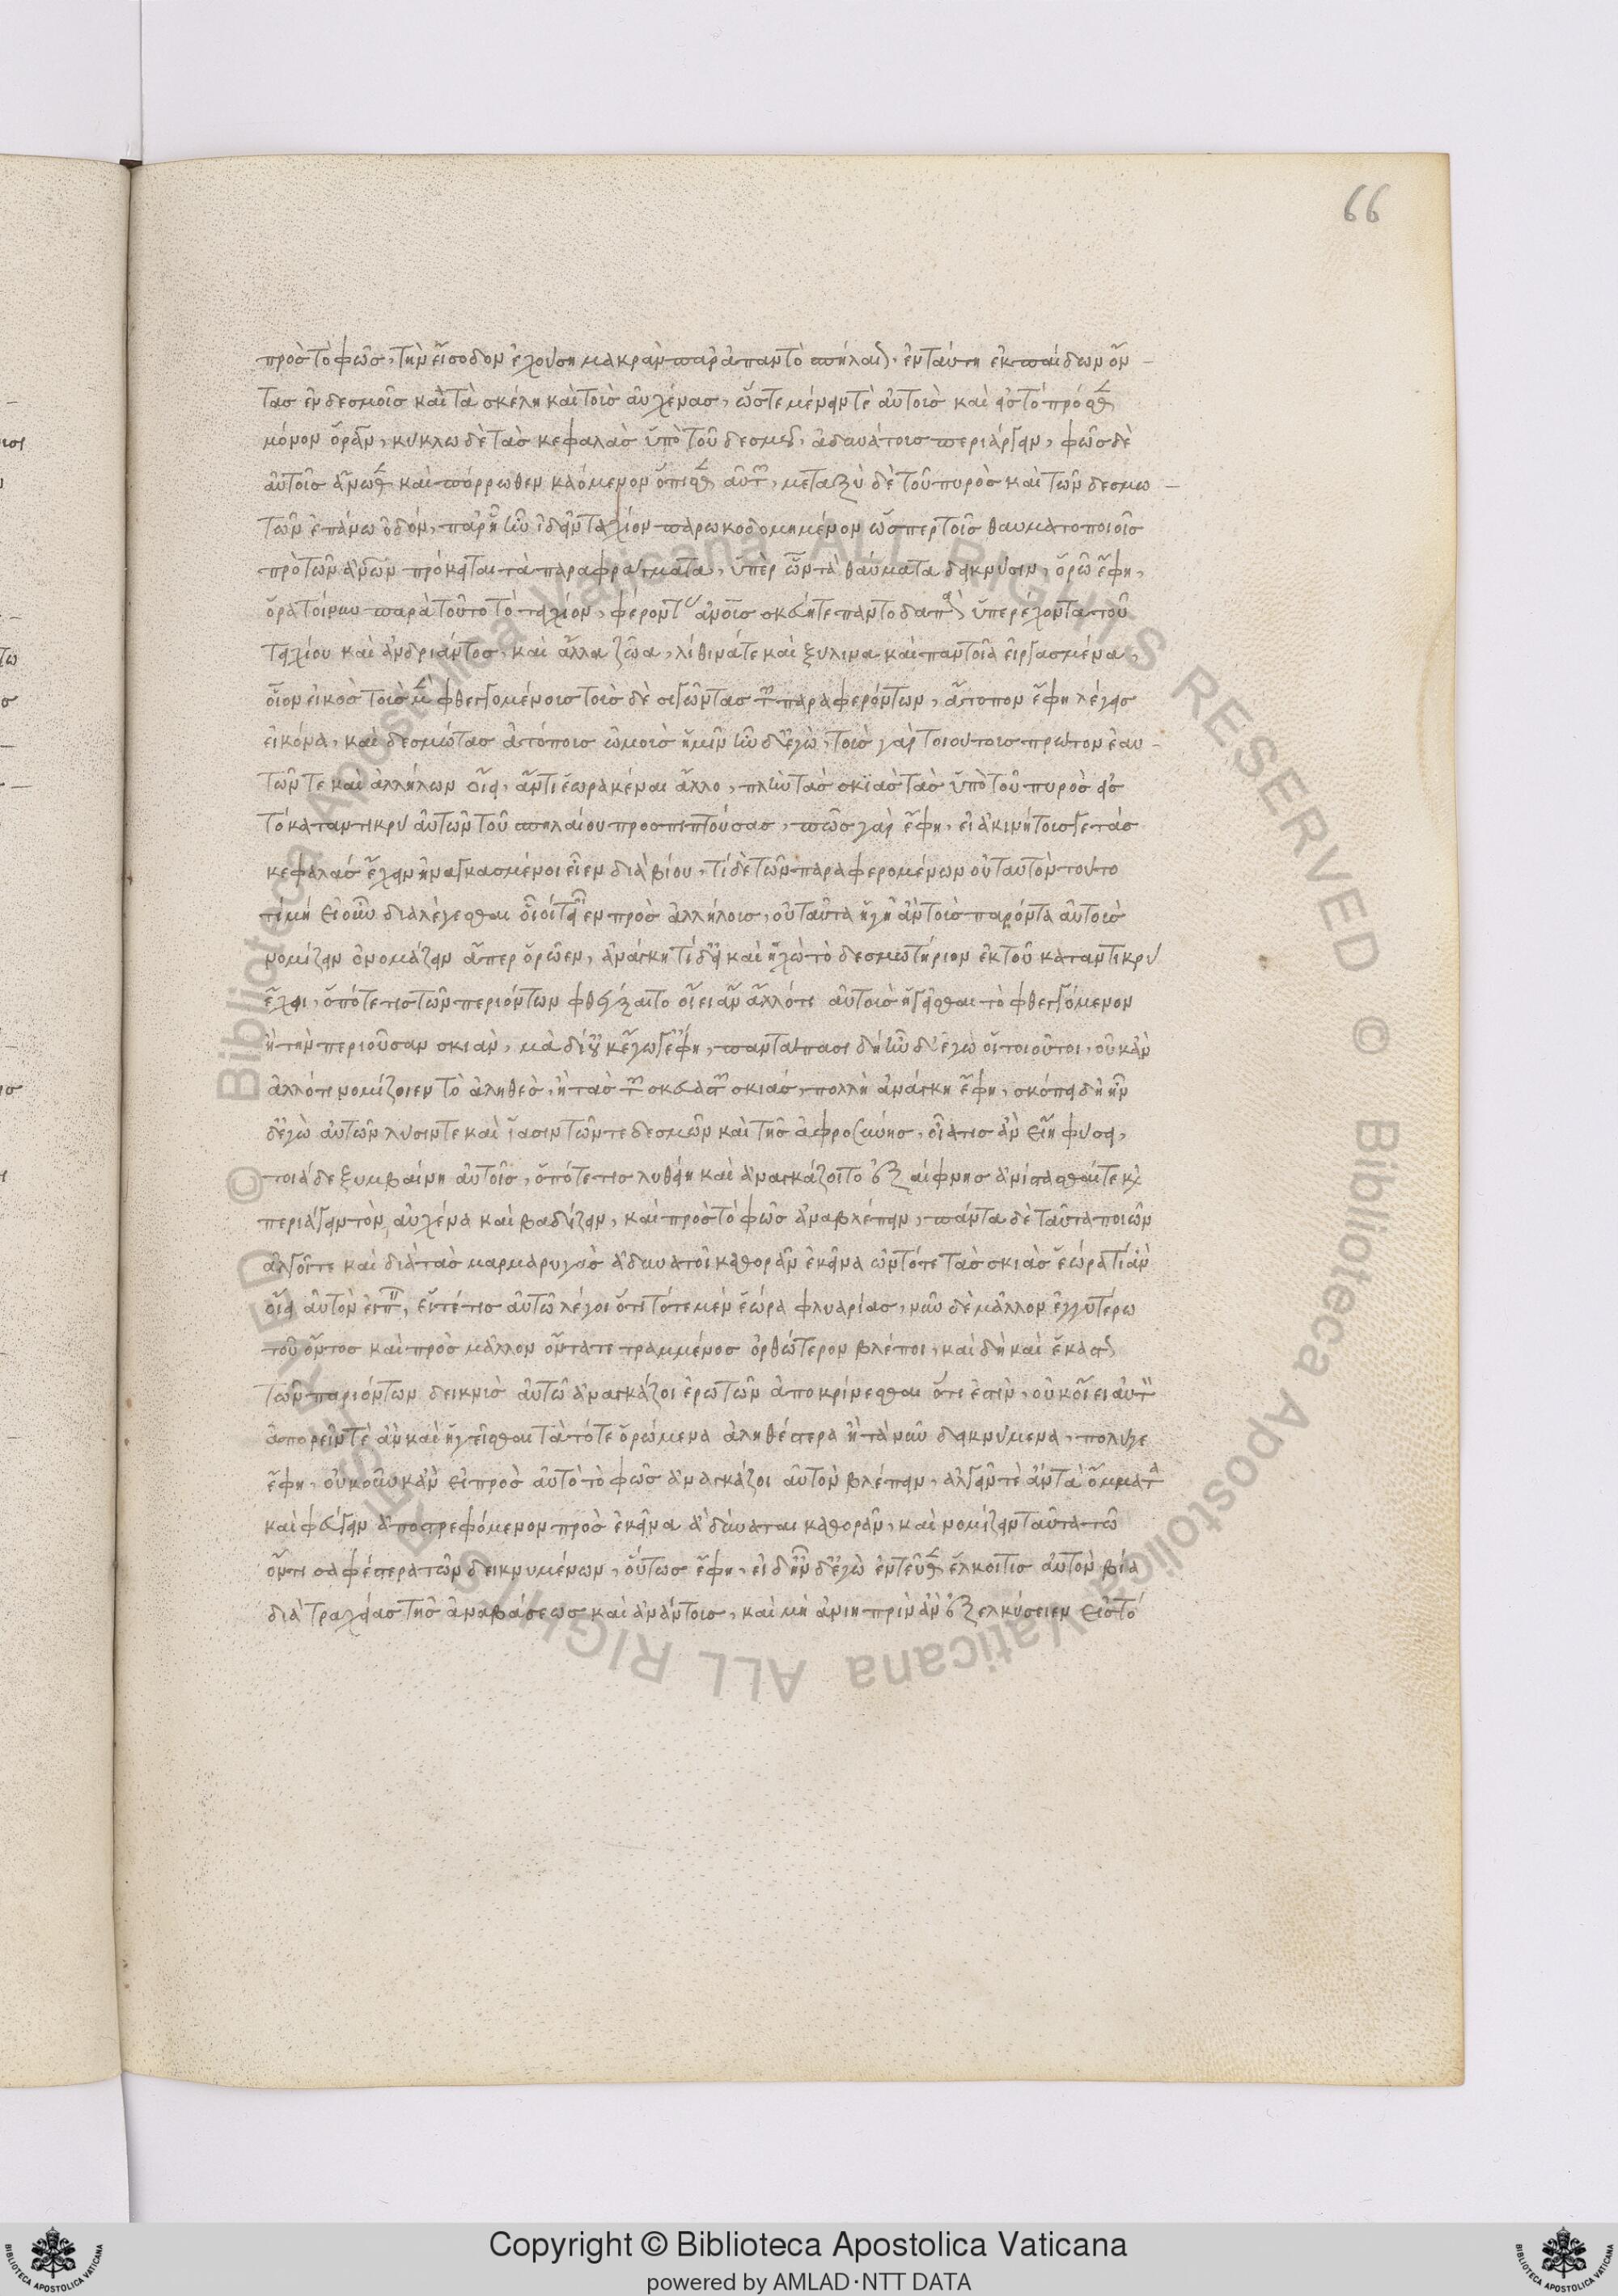 66
πρὸς τὸ φῶς, τὴν εἴσοδον ἐχούση μακρὰν παρ' ἅπαν τὸ σπήλαιον. ἐν ταύτη ἐκ παίδων ὄν
τας ἐν δεσμοῖς καὶ τὰ σκέλη καὶ τοὺς αὐχένας, ὥστε μένειν τὲ αὐτοὺς καὶ εἰς τὸ πρόσθεν
μόνον ὁρᾶν, κύκλω δὲ τὰς κεφαλὰς ὑπὸ τοῦ δεσμοῦ, ἀδυνάτους περιάγειν, φῶς δὲ
αὐτοῖς ἄνωθεν καὶ πόρρωθεν καόμενον ὄπισθεν αὐτῶν, μεταξὺ δὲ τοῦ πυρὸς καὶ τῶν δεσμω
τῶν ἐπάνω ὁδόν, παρ' ἣν ἰδεῖν τειχίον παρωκοδομημένον ὥσπερ τοῖς θαυματοποιοῖς
πρὸ τῶν ἀνων πρόκειται τὰ παραφράγματα, ὑπὲρ ὧν τὰ θαύματα δεικνύσιν, ὁρῶ ἔφη,
ὅρα τοίνυν παρὰ τοῦτο τὸ τειχίον, φέροντας ἀνους σκεύη τε παντοδαπὰ ὑπερέχοντα τοῦ
τειχίου καὶ ἀνδριάντας, καὶ ἄλλα ζῶα, λίθινά τε καὶ ξύλινα καὶ παντοῖα εἰργασμένα,
οἷον εἰκὸς τοὺς μὲν φθεγγομένους τοὺς δὲ σιγῶντας τῶν παραφερόντων, ἄτοπον ἔφη λέγεις
εἰκόνα, καὶ δεσμώτας ἀτόπους ὁμοιοὺς ἡμῖν ἦν δ' ἐγὼ, τοὺς γὰρ τοιούτους πρῶτον ἑαυ
τῶν τε καὶ ἀλλήλων οἴει, ἄν τι ἑωρακέναι ἄλλο, πλὴν τὰς σκιὰς τὰς ὑπὸ τοῦ πυρὸς εἰς
τὸ καταντικρὺ αὐτῶν τοῦ σπηλαίου προσπιπτούσας, πῶς γὰρ ἔφη, εἰ ἀκινήτους γε τὰς
κεφαλάς ἔχειν ἠναγκασμένοι εἶεν διὰ βίου, τί δὲ τῶν παραφερομένων οὐ ταυτὸν τοῦτο
τί μή εἰ οὖν διαλέγεσθαι οἷοί τ' εἶεν πρὸς ἀλλήλους, οὐ ταῦτα ἡγῆ ἂν τοὺς παρόντα αὐτοὺς
νομίζειν ὀνομάζειν ἅπερ ὁρῶεν, ἀνάγκη τί δ' εἰ καὶ ἠχὼ τὸ δεσμωτήριον ἐκ τοῦ καταντικρὺ
ἔχοι, ὁπότε τις τῶν περιόντων φθέγξαιτο οἴει ἂν ἄλλό τι αὐτοὺς ἡγεῖσθαι τὸ φθεγγόμενον
ἢ τὴν περιοῦσαν σκιὰν, μὰ δί' οὐκ ἔγωγ' ἔφη, παντάπασι δὴ ἦν δ' ἐγὼ οἱ τοιοῦτοι, οὐκ ἂν
ἀλλό τι νομίζοιεν τὸ ἀληθὲς, ἢ τὰς τῶν σκευαστῶν σκιάς, πολλὴ ἀνάγκη ἔφη, σκόπει δὴ ἦν
δ' ἐγὼ αὐτῶν λύσιν τε καὶ ἴασιν τῶν τε δεσμῶν καὶ τῆς ἀφροσύνης, οἵα τις ἂν εἴη φύσει,
τοιάδε ξυμβαίνη αὐτοῖς, ὁπότε τις λυθείη καὶ ἀναγκάζοιτο ἐξαίφνης ἀνίστασθαί τε καὶ
περιάγειν τὸν αὐχένα καὶ βαδίζειν, καὶ πρὸς τὸ φῶς ἀναβλέπειν, πάντα δὲ ταῦτα ποιῶν
ἀλγοῖτε καὶ διὰ τὰς μαρμαρυγὰς ἀδυνατοῖ καθορᾶν ἐκεῖνα ὧν τότε τὰς σκιὰς ἑώρα τί ἂν
οἴει αὐτὸν εἰπεῖν, εἴ τέ τις αὐτῶ λέγοι ὅτι τότε μὲν ἑώρα φλυαρίας, νῦν δὲ μᾶλλον ἐγγυτέρω
τοῦ ὄντος καὶ πρὸς μᾶλλον ὄντα τετραμμένος ὀρθώτερον βλέποι, καὶ δὴ καὶ ἕκαστον
τῶν παριόντων δεικνὺς αὐτῶ ἀναγκάζοι ἐρωτῶν ἀποκρίνεσθαι ὅτι ἐστὶν, οὐκ οἴει αὐτὸν
ἀπορεῖν τὲ ἂν καὶ ἡγεῖσθαι τὰ τότε ὁρώμενα ἀληθέστερα ἢ τὰ νῦν δεικνύμενα, πολύ γε
ἔφη, οὐκοῦν κἂν εἰ πρὸς αὐτὸ τὸ φῶς ἀναγκάζοι αὐτὸν βλέπειν, ἀλγεῖν τὲ ἂν τὰ ὄμματα
καὶ φεύγειν ἀποστρεφόμενον πρὸς ἐκεῖνα ἃ δύναται καθορᾶν, καὶ νομίζειν ταῦτα τῶ
ὄντι σαφέστερα τῶν δεικνυμένων, οὕτως ἔφη, εἰ δ' ἦν δ' ἐγὼ ἐντεῦθεν ἕλκοι τις αὐτὸν βία
διὰ τραχείας τῆς ἀναβάσεως καὶ ἀνάντους, καὶ μὴ ἀνίη πρὶν ἂν ἐξελκύσειεν εἰς τὸ
Copyright © Biblioteca Apostolica Vaticana
powered by AMLAD·NTT DATA
© Biblioteca Apostolica Vaticana ALL RIGHTS RESERVED © Biblioteca Apostolica Vaticana ALL RIGHTS RESERVED